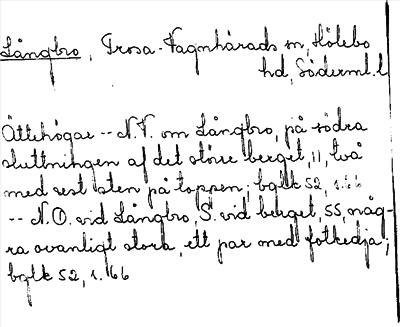 Långbro, Trosa-Vagnhärads sn, Hölebo
hd, Söderml. l
Ättehögar -- N.V. om Långbro, på södra
sluttningen af det större berget, 11, två
med rest sten på toppen; bglk 52, s. 166
-- N.O. vid Långbro, S. vid berget, 55, någ-
ra ovanligt stora, ett par med fotkedja;
bglk 52, s. 166